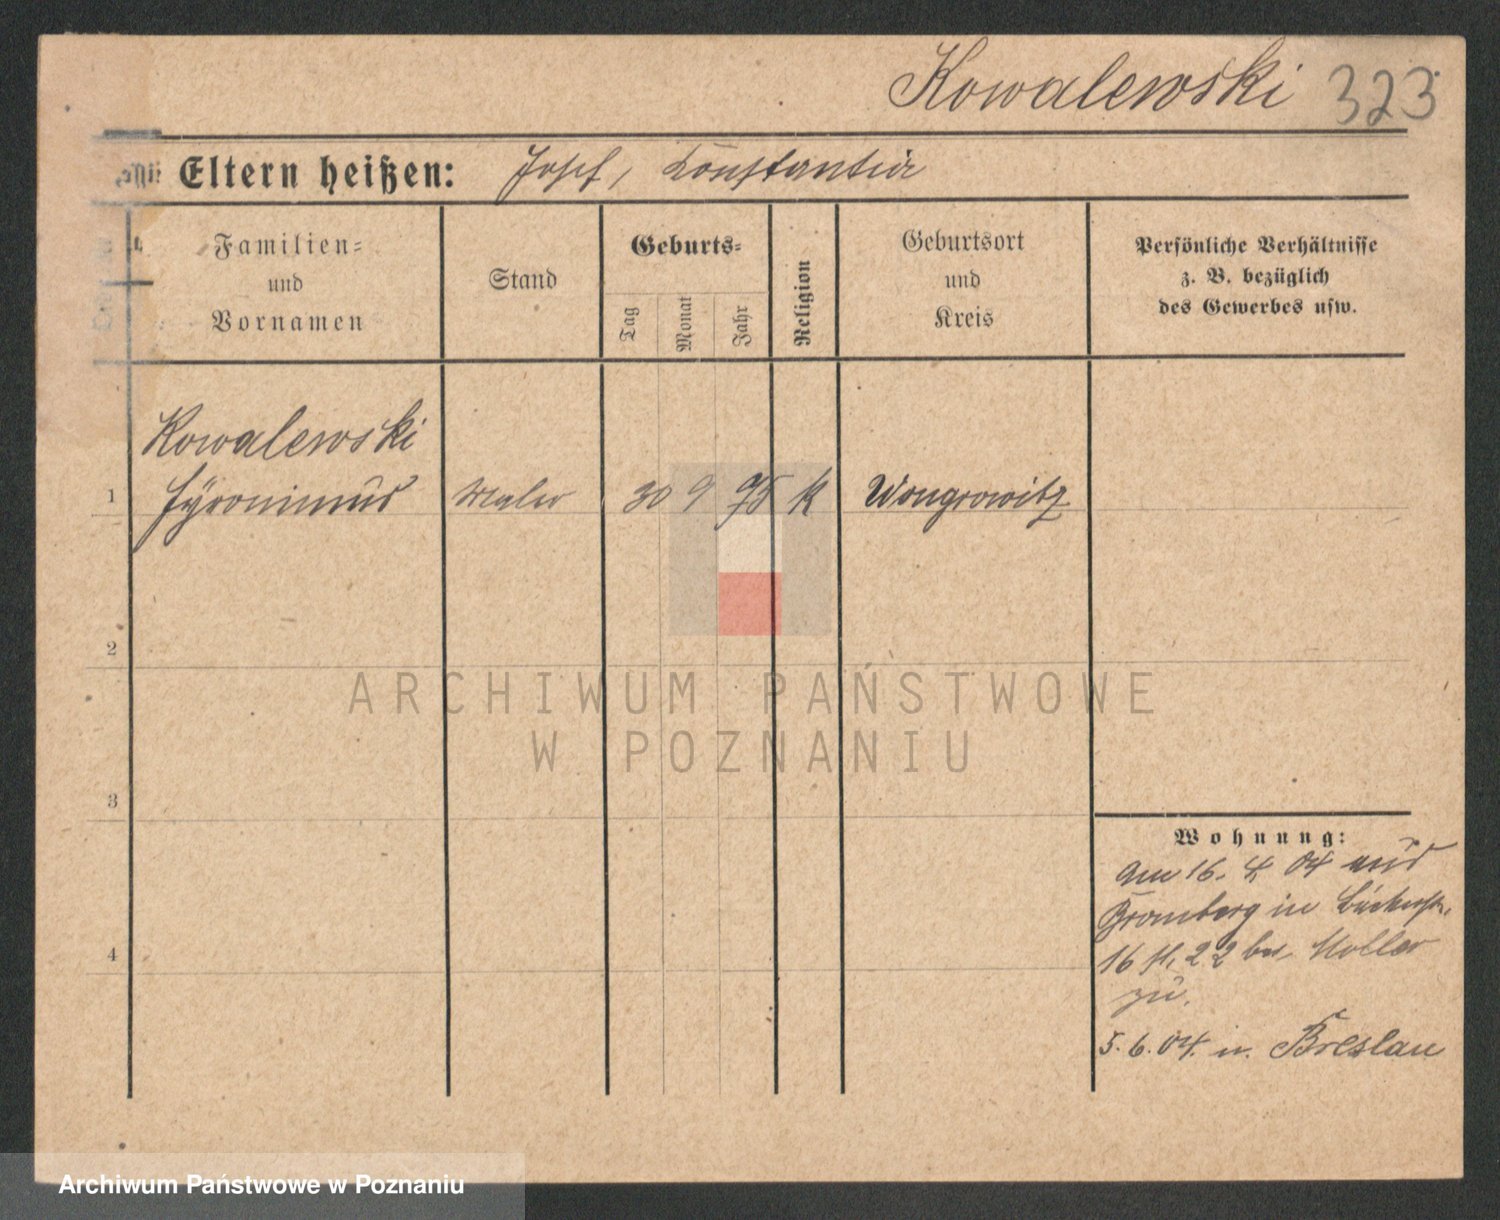 Kowalewski 323
Eltern heißen: Josef, Konstantia
Familien=
und
Vornamen
Stand
Geburts=
Tag
Monat
Jahr
Religion
Geburtsort
und
Kreis
Persönliche Verhältnisse
z. B. bezüglich
des Gewerbes usw.
Kowalewski
1 Hyronimus Maler 30 9 75 K Wongrowitz
2
3
4
Wohnung:
Am 16. 4. 04 aus
Bromberg in Bäckerstr.
16 H, 22 bei Moller
zu.
5. 6. 04. n. Breslau
ARCHIWUM PAŃSTWOWE
W POZNANIU
Archiwum Państwowe w Poznaniu